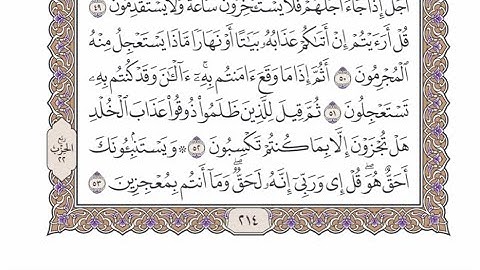 أَجَلٌ إِذَا جَآءَ أَجَلُهُمْ فَلَا يَسْتَـْٔخِرُونَ سَاعَةً وَلَا يَسْتَقْدِمُونَ ٤٩
قُلْ أَرَءَيْتُمْ إِنْ أَتَىٰكُمْ عَذَابُهُۥ بَيَـٰتًا أَوْ نَهَارًا مَّاذَا يَسْتَعْجِلُ مِنْهُ
ٱلْمُجْرِمُونَ ٥٠ أَثُمَّ إِذَا مَا وَقَعَ ءَامَنتُم بِهِۦٓ ءَآلْـَٔـٰنَ وَقَدْ كُنتُم بِهِۦ
تَسْتَعْجِلُونَ ٥١ ثُمَّ قِيلَ لِلَّذِينَ ظَلَمُوا۟ ذُوقُوا۟ عَذَابَ ٱلْخُلْدِ
هَلْ تُجْزَوْنَ إِلَّا بِمَا كُنتُمْ تَكْسِبُونَ ٥٢ ۞ وَيَسْتَنۢبِـُٔونَكَ
أَحَقٌّ هُوَ ۖ قُلْ إِى وَرَبِّىٓ إِنَّهُۥ لَحَقٌّ ۖ وَمَآ أَنتُم بِمُعْجِزِينَ ٥٣
ربع
الحزب
٢٢
٢١٤